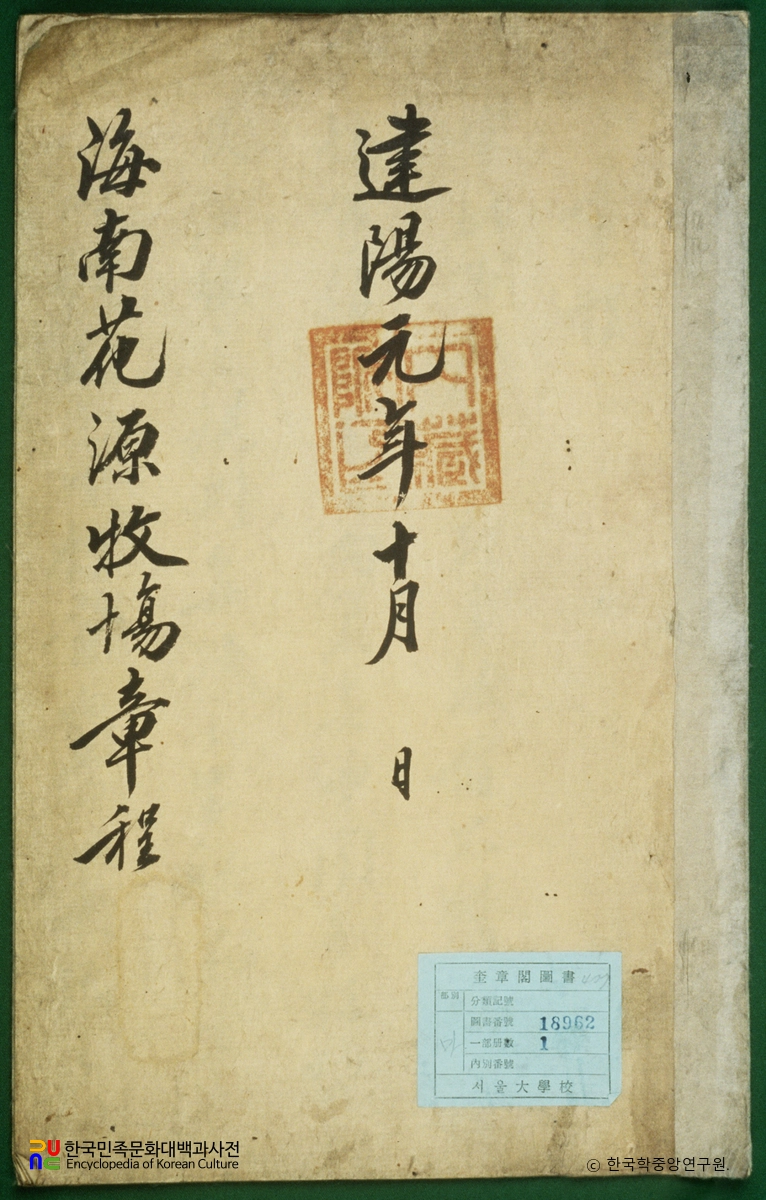 建陽元年十月 日
海南花源牧場章程
奎章閣圖書
部別
分類記號
圖書番號 18962
一部册數 1
內別番號
서울大學校
한국민족문화대백과사전
Encyclopedia of Korean Culture
© 한국학중앙연구원.